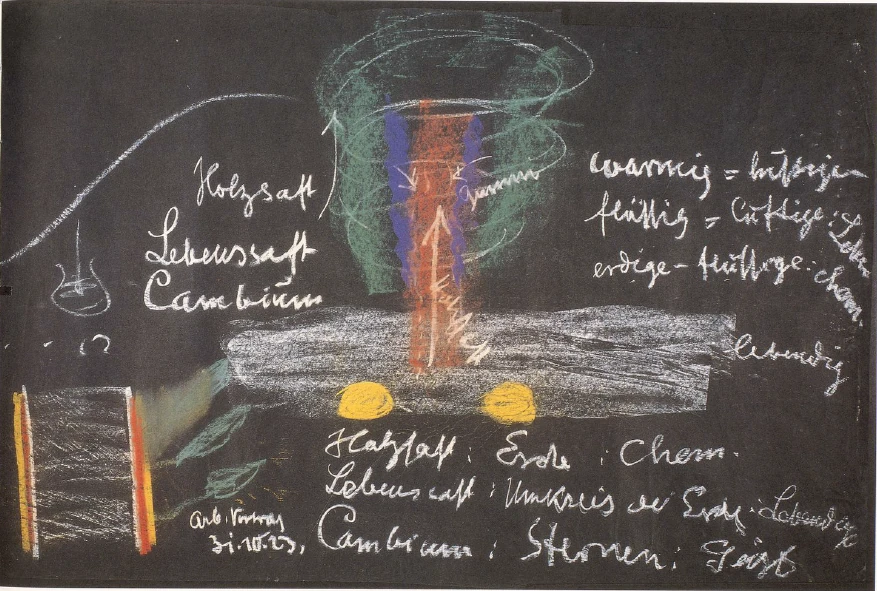 Holzsaft
Lebenssaft
Cambium
warmig = luftigen
flüssig = Luftige: Leben
erdige - flüssige: chem.
lebendig
Holzsaft: Erde: Chem.
Lebenssaft: Umkreis der Erde: Lebendige
Cambium: Sternen: Geist
Arb. Vortrag
31.10.23,